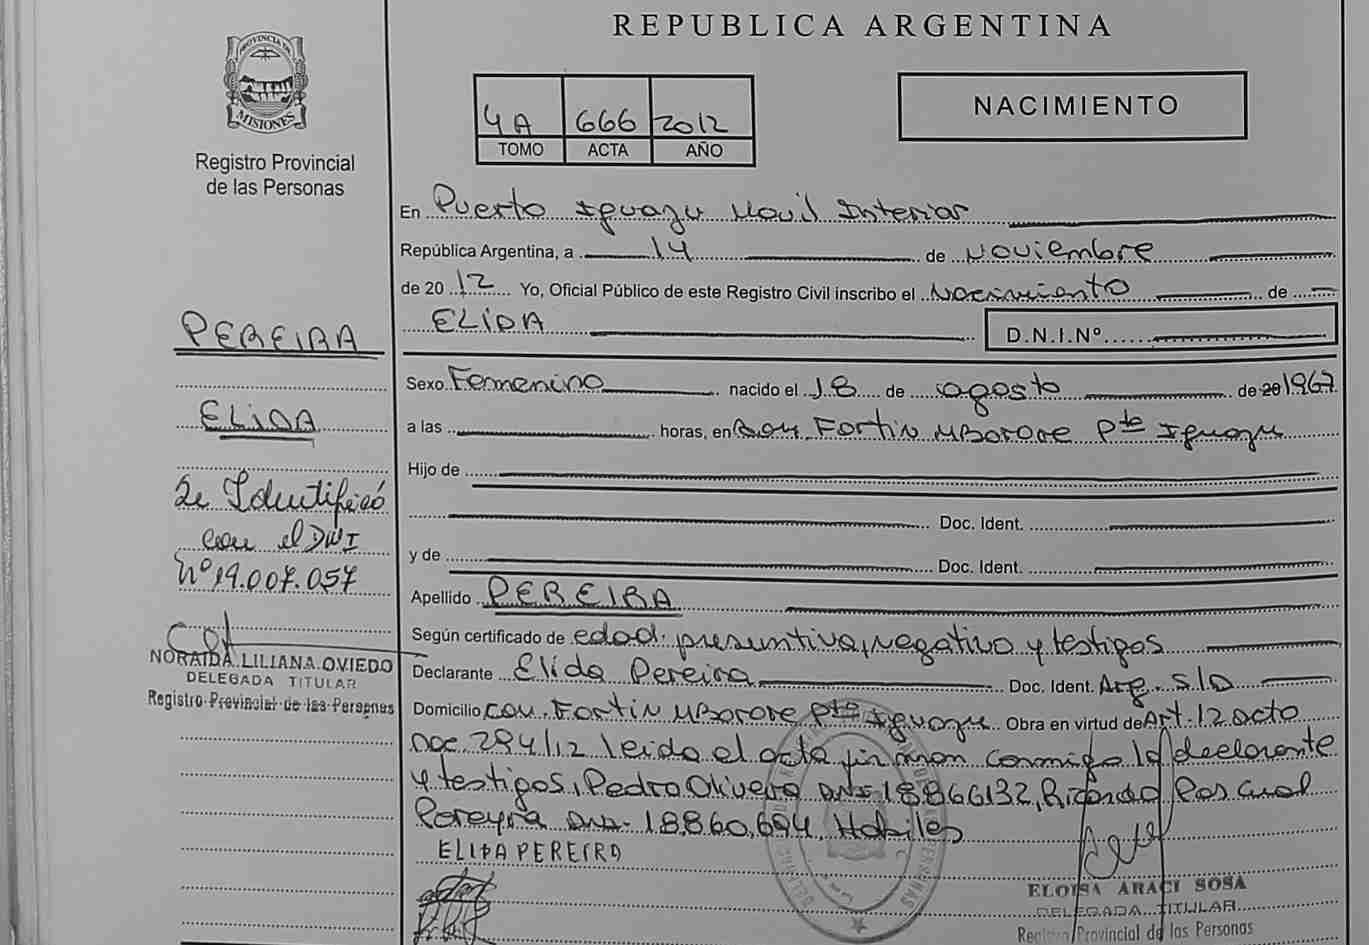 REPUBLICA ARGENTINA
PROVINCIA DE
MISIONES
Registro Provincial
de las Personas
4A 666 2012
TOMO ACTA AÑO
NACIMIENTO
En Puerto Iguazu Movil Interior
República Argentina, a 14 de Noviembre
de 20 12 Yo, Oficial Público de este Registro Civil inscribo el Nacimiento de
ELIDA D.N.I.Nº
Sexo Femenino nacido el 18 de agosto de 20 1967
a las horas, en Com Fortin MBorore Pte Iguazu
Hijo de
Doc. Ident.
y de Doc. Ident.
Apellido PEREIRA
Según certificado de edad presuntiva, negativo y testigos
Declarante Elida Pereira Doc. Ident. Arg. S/D
Domicilio com. Fortin MBorore Pto Iguazu Obra en virtud de Art. 12 acto
Doc 294/12 leida el acta firman conmigo la declarente
y testigos, Pedro Olivera DNI 18866132, Ricardo Pascual
Pereyra DNI 18.860.694. Habiles
ELIDA PEREIRA
ELOISA ARACI SOSA
DELEGADA TITULAR
Registro Provincial de las Personas
PEREIRA
ELIDA
Se Identificó
con el DNI
Nº 19.007.057
NORAIDA LILIANA OVIEDO
DELEGADA TITULAR
Registro Provincial de las Personas